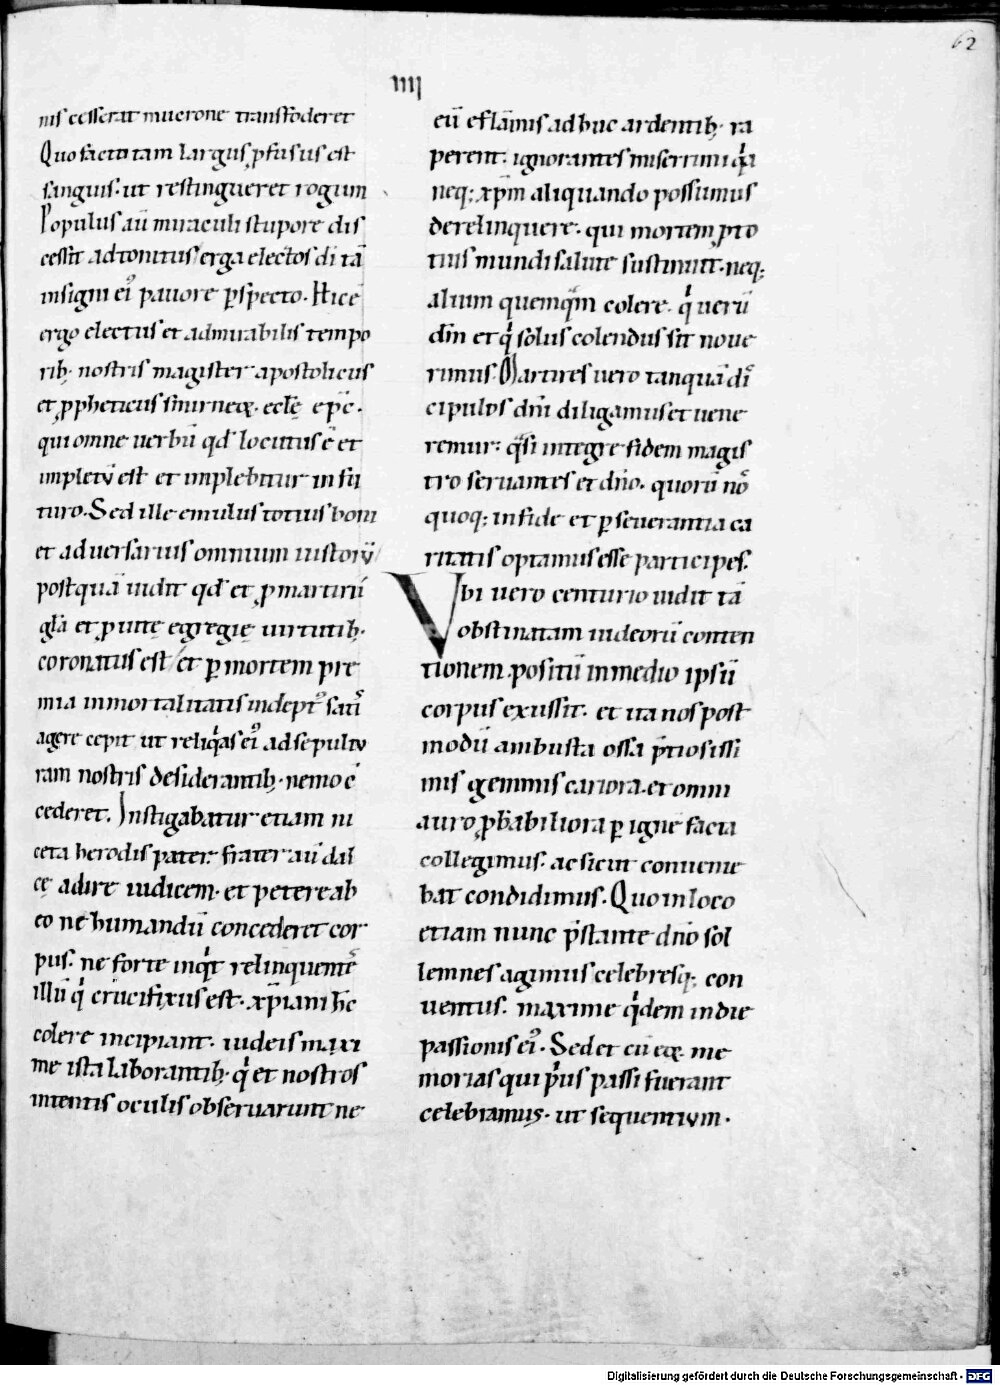 62
IIII
nis cesserat mucrone transfoderet
Quo facto tam largus ꝓfusus est
sanguis· ut restingueret rogum
Populus aū miraculi stupore dis
cessit adtonitus erga electos di tā
insigni ei᾿ pauore ꝑspecto. Hic ē
ergo electus et admirabilis tempo
rib; nostris magister apostolicus
et ꝓpheticus smirneę. ecłę epc̄.
qui omne uerbū qđ locutus ē et
impletū est et implebitur in fu
turo. Sed ille emulus totius boni
et aduersarius omnium iustorū
postquā uidit qđ et ꝓ martirii
gła et ꝓ uitę egregię uirtutib;
coronatus est et ꝑ mortem pre
mia inmortalitatis indept᾿ sati᾿
agere cepit ut reliqͥas ei᾿ ad sepultu
ram nostris desiderantib; nemo ē
cederet. Instigabatur etiam ni
ceta herodis pater· frater aū dal
cę adire iudicem· et petere ab
eo ne humandū concederet cor
pus· ne forte inqͥt relinquentes
illū qͥ crucifixus est· xp̄iani hc̄
colere incipiant· iudeis maxi
me ista laborantib; qͥ et nostros
intentis oculis obseruarunt ne
eū e flāmis adhuc ardentib; ra
perent· ignorantes miserrimi qͣa
neq; xp̄m aliquando possumus
derelinquere· qui mortem ꝓ to
tius mundi salute sustinuit· neq;
alium quemqͣm colere· qͥ uerū
dm̄ et qͥ solus colendus sit noue
rimus· Martires uero tanquā di
cipulos dn̄i diligamus et uene
remur· qͣsi integre fidem magis
tro seruantes et dn̄o· quorū nō
quoq; in fide et ꝑseuerantia ca
ritatis optamus esse participes.
Vbi uero centurio uidit tā
obstinatam iudeorū conten
tionem· positū in medio ipsū
corpus exussit· et ita nos post
modū ambusta ossa p̄tiosissi
mis gemmis cariora· et omni
auro ꝓbabiliora ꝑ igne facta
collegimus· ac sicut conuenie
bat condidimus. Quo in loco
etiam nunc p̄stante dn̄o sol
lemnes agimus celebresq; con
uentus· maxime qͥdem in die
passionis ei᾿· Sed et cū eę· me
morias qui pͥus passi fuerant
celebramus· ut sequentium·
Digitalisierung gefördert durch die Deutsche Forschungsgemeinschaft - DFG